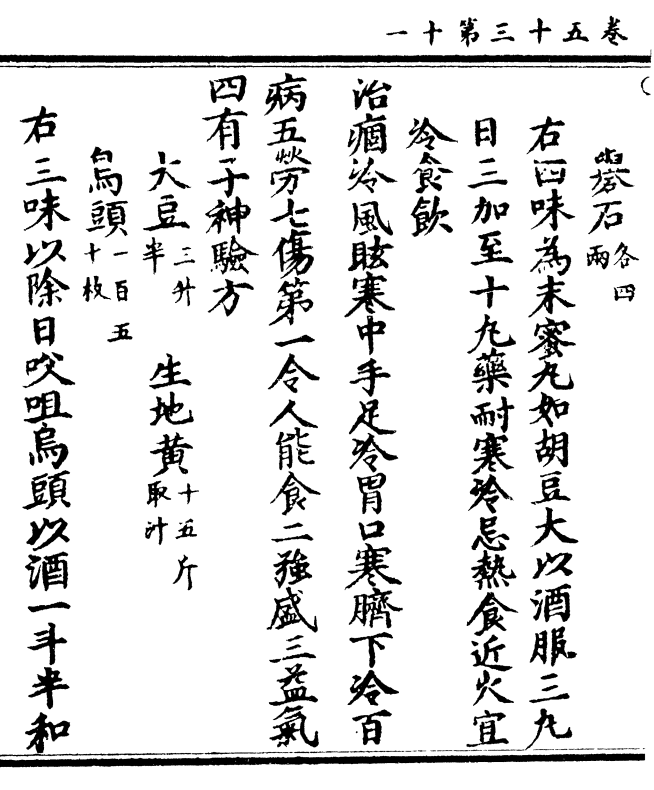 卷五十三第十一
礜石各四兩
右四味為末蜜丸如胡豆大以酒服三丸
日三加至十丸藥耐寒冷忌熱食近火宜
冷食飲
治痼冷風眩寒中手足冷胃口寒臍下冷百
病五勞七傷第一令人能食二強盛三益氣
四有子神驗方
大豆三升半 生地黄十五斤取汁
烏頭一百五十枚
右三味以除日㕮咀烏頭以酒一斗半和